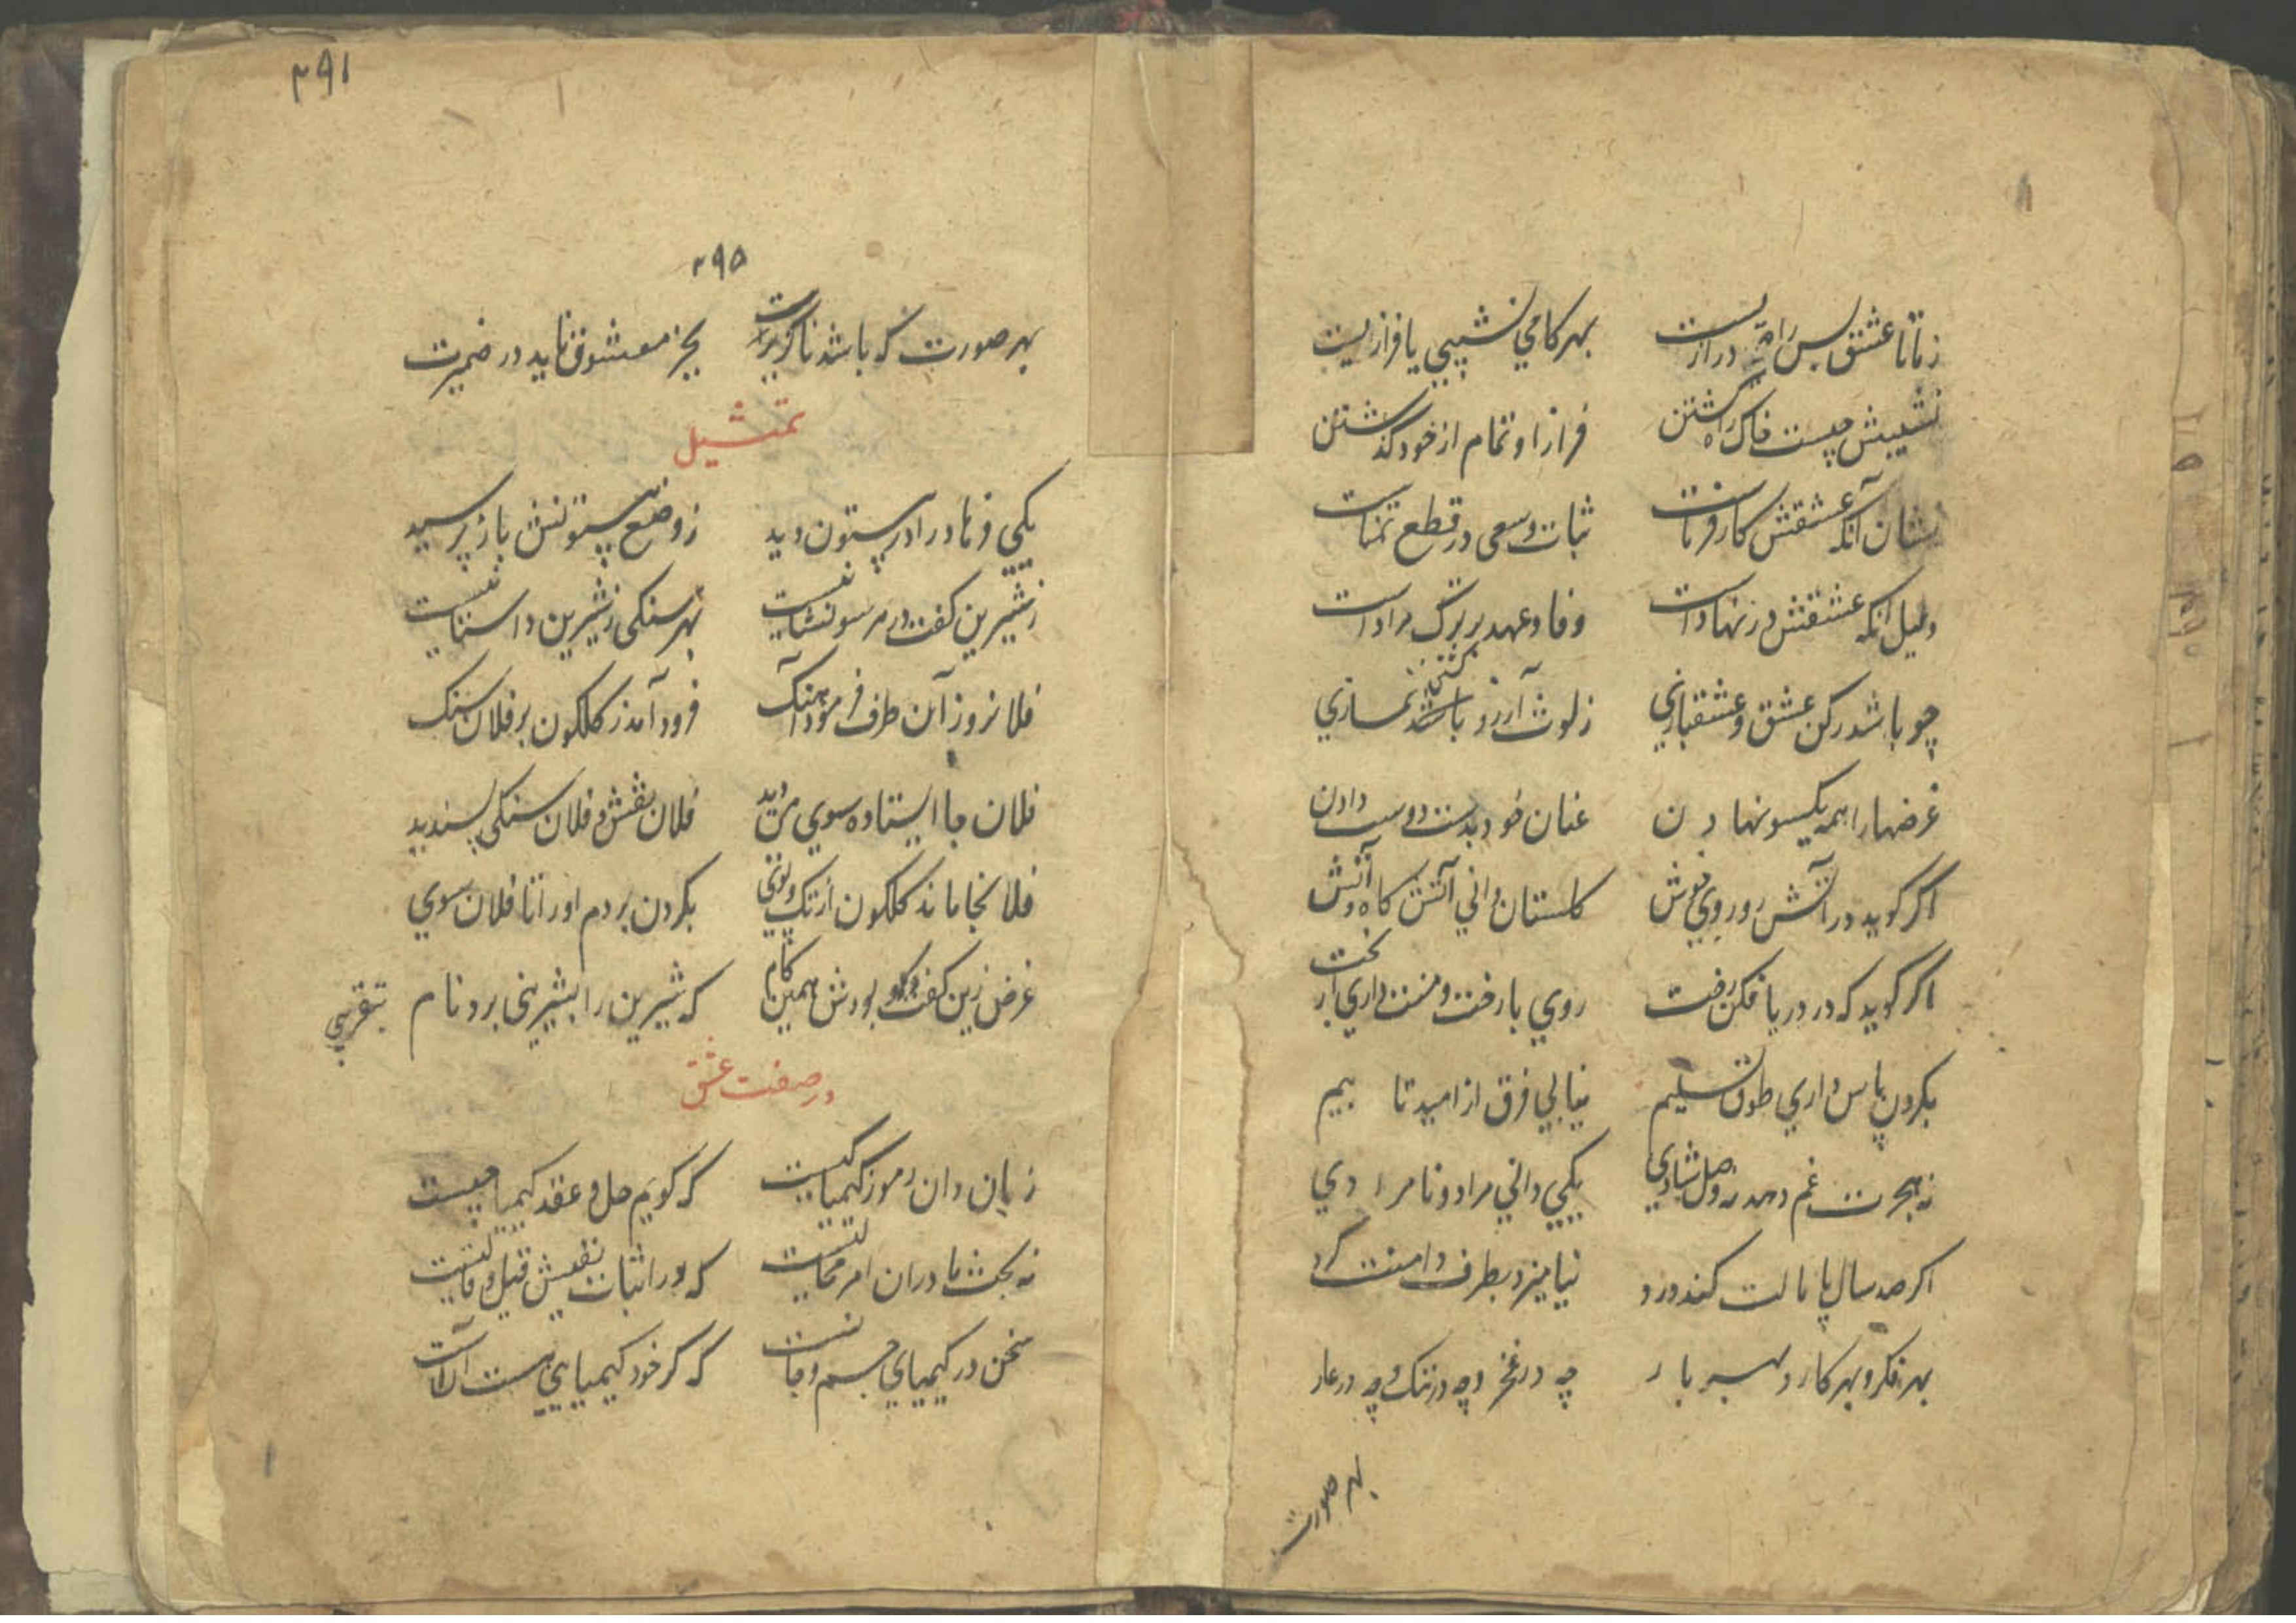 زما تا عشق بس راه درازیست    بهر کامی نشیبی یا فرازیست
نشیبش چیست خاک راه گشتن    فراز او تمام از خود گذشتن
نشان آنکه عشقش کارفرماست    ثبات وسعی در قطع تمناست
دلیل آنکه عشقش در نهادست    وفا وعهد بر ترک مرادست
چو باشد رکن عشق وعشقبازی    ز لوث آرزو گشتن نمازی
غرضها را همه یکسو نهادن    عنان خود بدست دوست دادن
اگر گوید در آتش رو روی خوش    گلستان دانی آتش گاه وآتش
اگر گوید که در دریا فکن رخت    روی با رخت ومنت داری از بخت
بگردن پاس داری طوق تسلیم    نیابی فرق از امید تا بیم
نه هجرت غم دهد نه وصل شادی    یکی دانی مراد ونامرادی
اگر صد سال پامالت کند درد    نیامیزد بطرف دامنت گرد
بهر فکر وبهر کار وبهر بار    چه در فخر وچه در ننگ وچه در عار
بهر صورت
۲۹۱
۲۹۵
بهر صورت که باشد ناگزیرت    بجز معشوق ناید در ضمیرت
تمثیل
یکی فرهاد را در بیستون دید    ز وضع بیستونش باز پرسید
ز شیرین گفت در هر سو نشانیست    بهر سنگی ز شیرین داستانیست
فلان روز آن طرف فرمود آهنگ    فرود آمد ز گلگون بر فلان سنگ
فلان جا ایستاده سوی من دید    فلان نقش وفلان سنگی پسندید
فلانجا ماند گلگون از تک وپوی    بگردن بردم او را تا فلان سوی
غرض زین گفت وگو بودش همین کام    که شیرین را بتقریبی برد نام
بتقریبی
در صفت عشق
زبان دان رموز کیمیا کیست    که گویم حل وعقد کیمیا چیست
نه بحث ما در آن امر محالست    که در اثبات ونفیش قیل وقالست
سخن در کیمیای جسم وجانست    که گر خود کیمیایی هست آنست